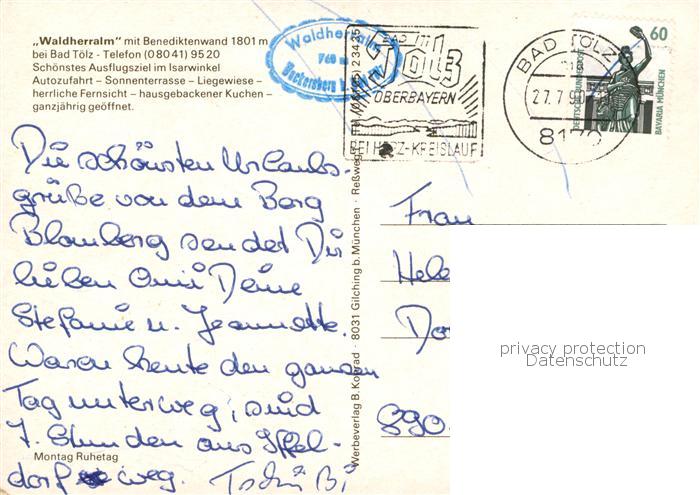 „Waldherralm" mit Benediktenwand 1801 m
bei Bad Tölz - Telefon (08041) 9520
Schönstes Ausflugsziel im Isarwinkel
Autozufahrt – Sonnenterrasse – Liegewiese –
herrliche Fernsicht – hausgebackener Kuchen –
ganzjährig geöffnet.
Waldherralm
760 m
BAD
TÖLZ
OBERBAYERN
BEI HERZ-KREISLAUF
BAD TÖLZ
27.7.90
8170
60
DEUTSCHE BUNDESPOST
BAVARIA MÜNCHEN
Die schönsten Urlaubs-
grüße von dem Berg
Blomberg sendet Dir
lieben Omi Deine
Stefanie u. Jeannette.
Waren heute den ganzen
Tag unterweg, sind
7. Stunden aus Iffel-
dorf weg. Tschü Bi
Montag Ruhetag
Werbeverlag B. Konrad · 8031 Gilching b. München · Reßweg
Frau
Hele
Dor
890
privacy protection
Datenschutz